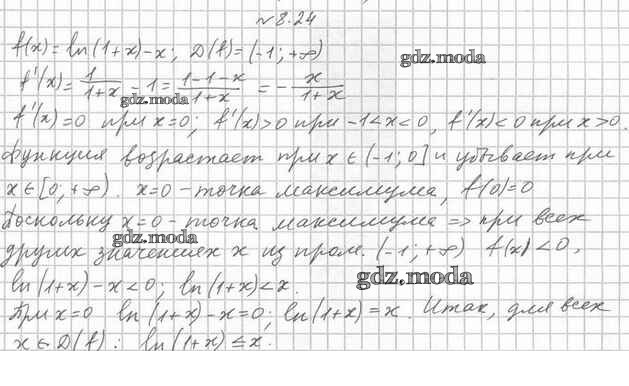 №8.24
f(x) = ln(1+x)-x; D(f) = (-1; +∞)
gdz.moda
f'(x) = 1/(1+x) - 1 = (1-1-x)/(1+x) = - x/(1+x)
gdz.moda
f'(x)=0 при x=0; f'(x)>0 при -1<x<0, f'(x)<0 при x>0.
Функция возрастает при x ∈ (-1; 0] и убывает при
x ∈ [0; +∞). x=0 - точка максимума, f(0)=0
Поскольку x=0 - точка максимума => при всех
gdz.moda
других значениях x из пром. (-1; +∞) f(x)<0,
ln(1+x)-x<0; ln(1+x)<x.
gdz.moda
При x=0 ln(1+x)-x=0; ln(1+x)=x. Итак, для всех
x ∈ D(f): ln(1+x) ≤ x.